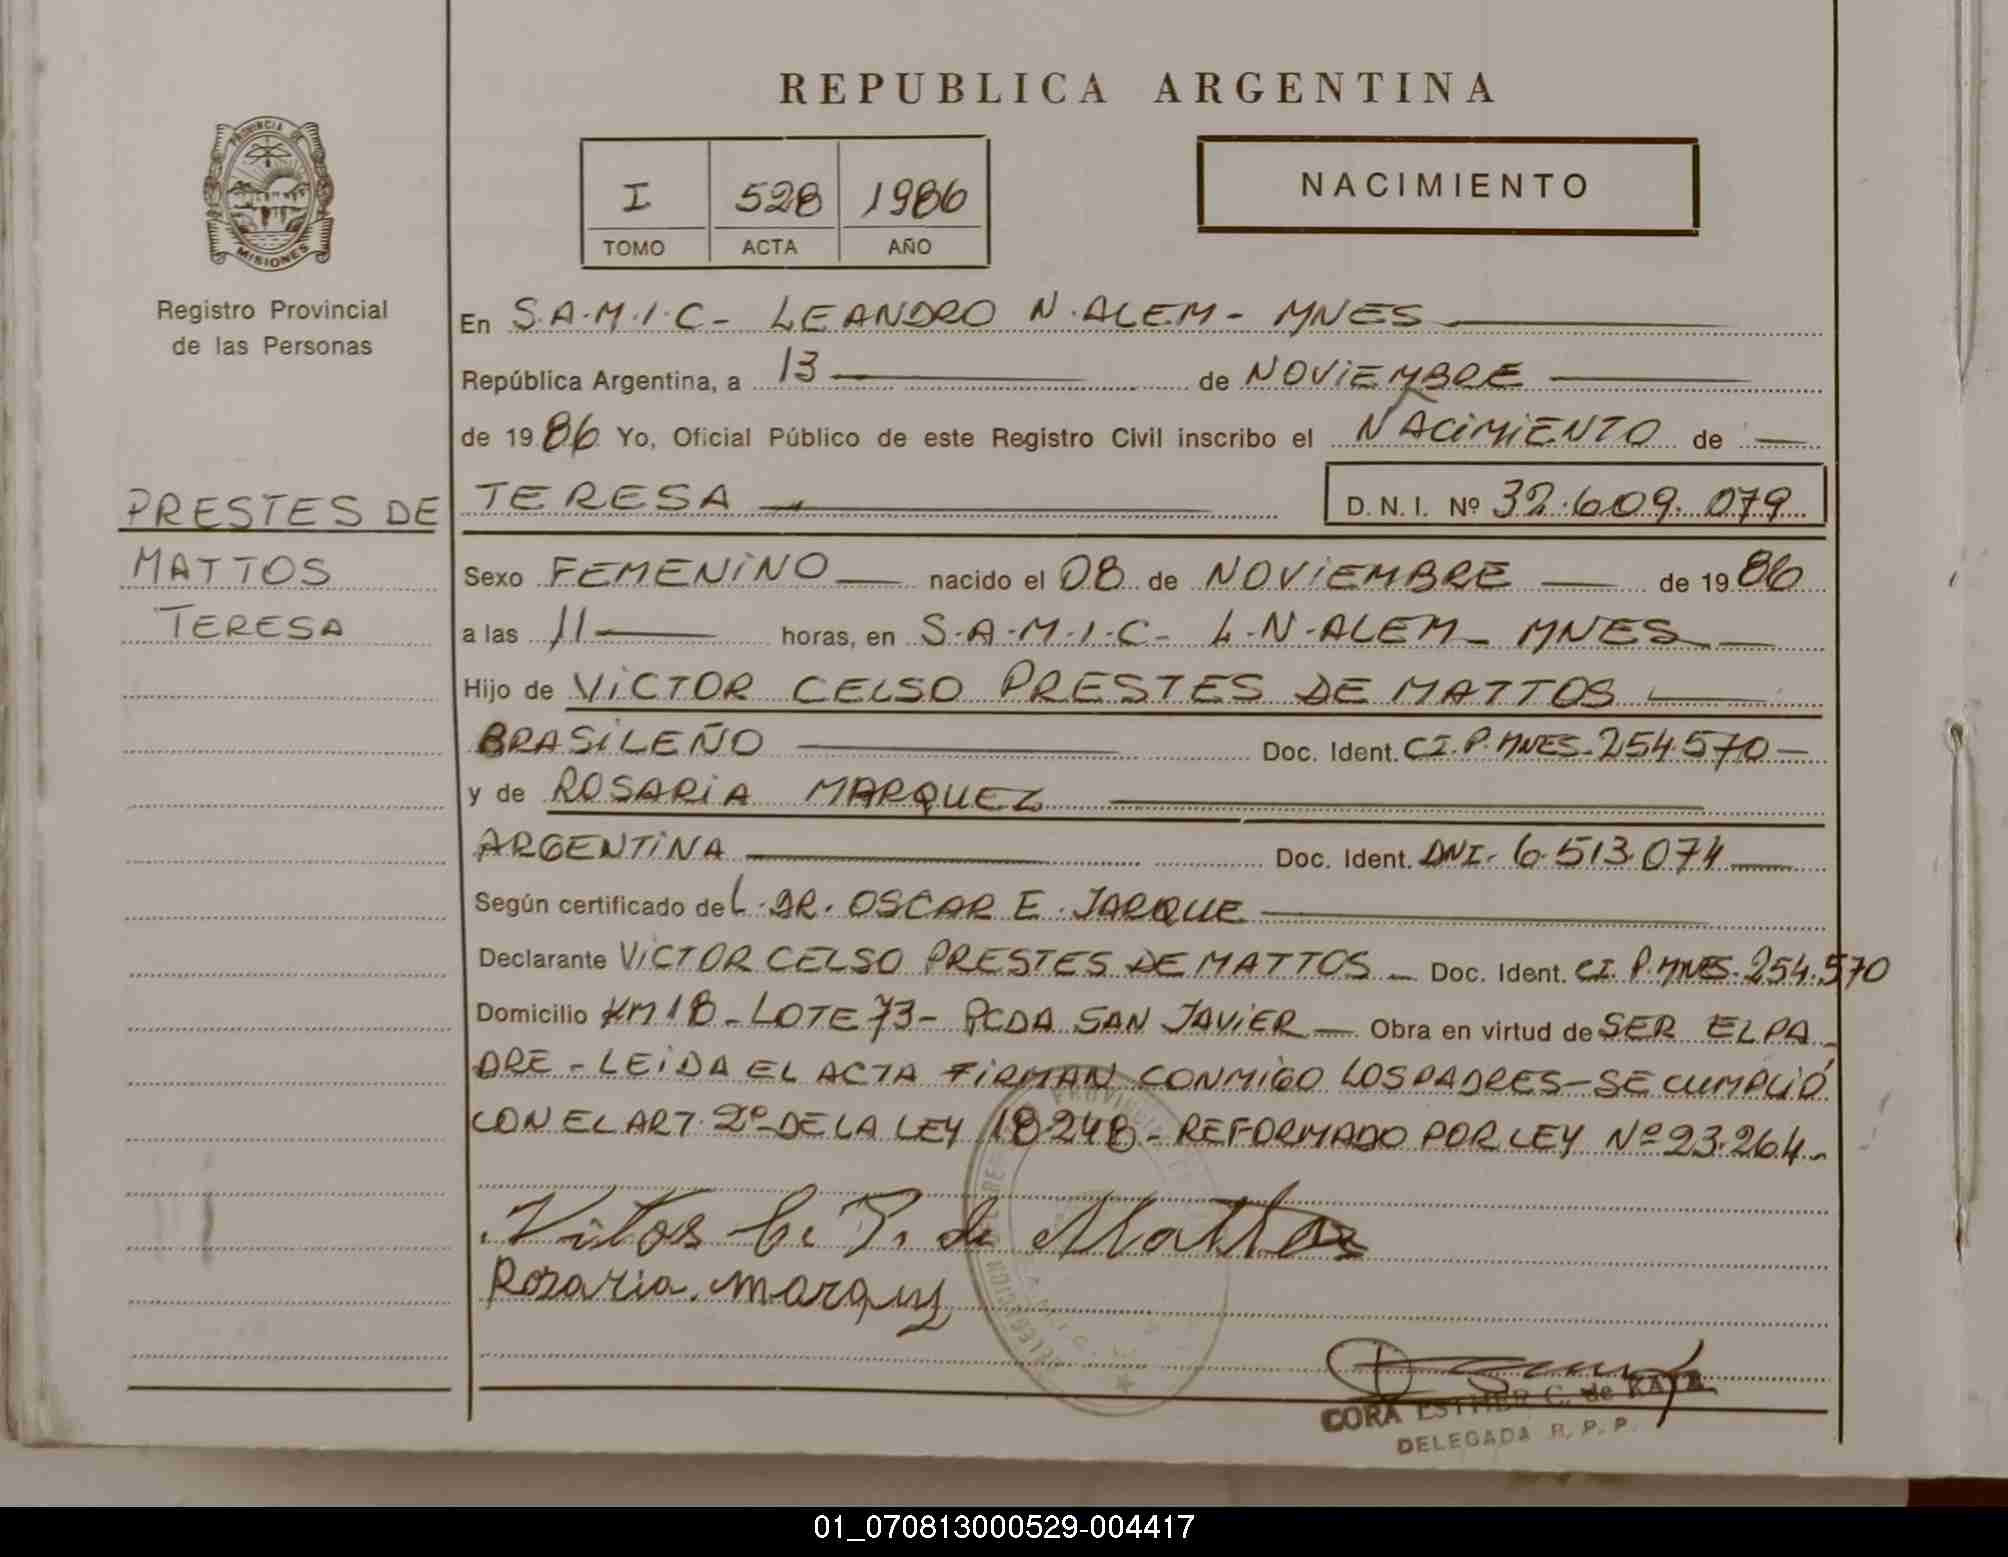 REPUBLICA ARGENTINA
PROVINCIA DE
MISIONES
Registro Provincial
de las Personas
I 528 1986
TOMO ACTA AÑO
NACIMIENTO
En S.A.M.I.C- LEANDRO N. ALEM- MNES
República Argentina, a 13 de NOVIEMBRE
de 1986 Yo, Oficial Público de este Registro Civil inscribo el NACIMIENTO de
PRESTES DE
MATTOS
TERESA
TERESA D. N. I. Nº 32.609.079
Sexo FEMENINO nacido el 08 de NOVIEMBRE de 1986
a las 11 horas, en S.A.M.I.C- L.N.ALEM- MNES
Hijo de VICTOR CELSO PRESTES DE MATTOS
BRASILEÑO Doc. Ident. CI.P.MNES.254.570
y de ROSARIA MARQUEZ
ARGENTINA Doc. Ident. DNI- 6.513.074
Según certificado del DR. OSCAR E. JARQUE
Declarante VICTOR CELSO PRESTES DE MATTOS Doc. Ident. CI. P.MNES.254.570
Domicilio KM 18-LOTE 73- PCDA SAN JAVIER Obra en virtud de SER EL PA
DRE-LEIDA EL ACTA FIRMAN CONMIGO LOS PADRES-SE CUMPLIÓ
CON EL ART. 2º DE LA LEY 18.248- REFORMADO POR LEY Nº 23.264-
Vitos C. P. de Mattos
Rosaria Marquez
CORA ESTHER C. de
DELEGADA R. P. P.
01_070813000529-004417